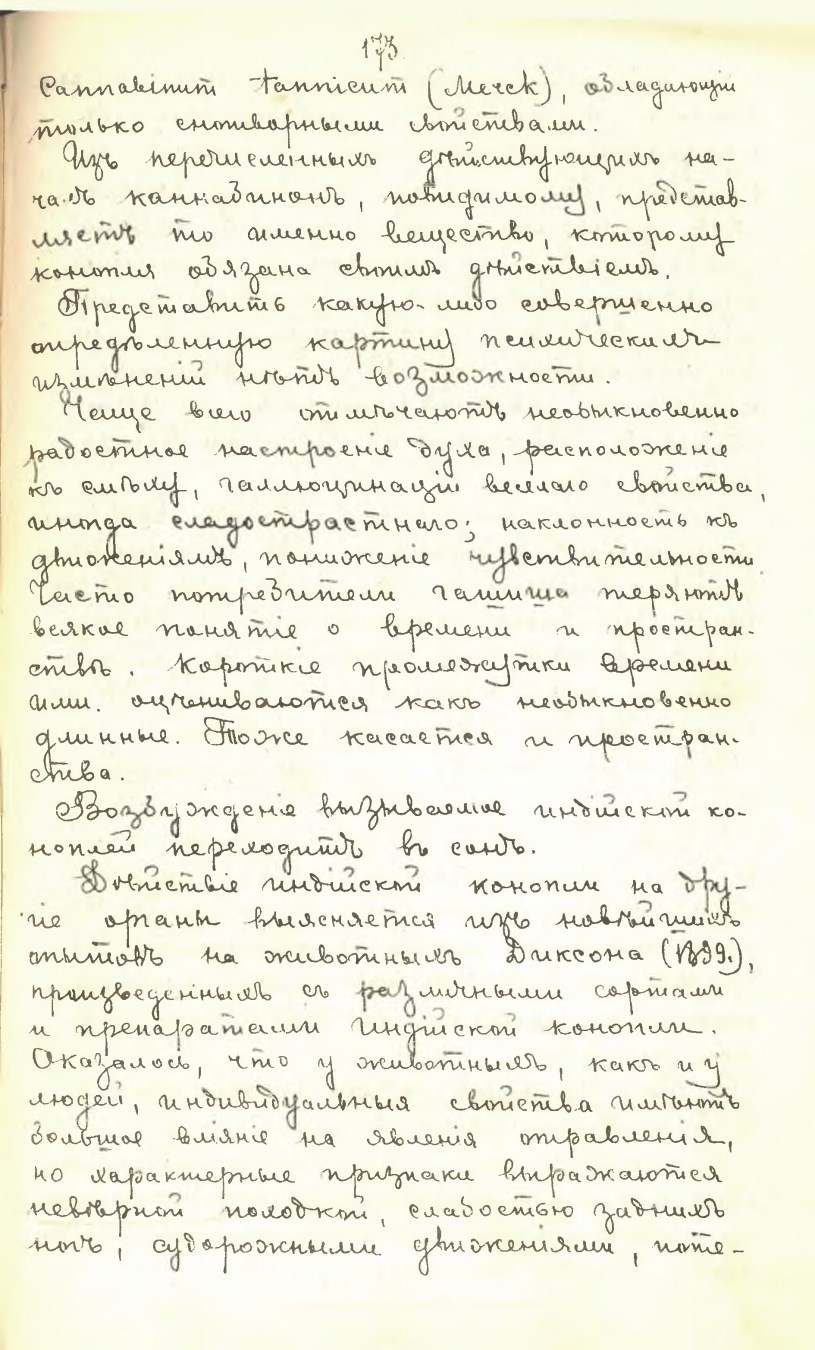 173
Cannabinum tannicum (Мечск), обладающій
только снотворными свойствами.
Изъ перечисленныхъ дѣйствующихъ на-
чалъ каннабинонъ, повидимому, представ-
ляетъ то именно вещество, которому
конопля обязана своимъ дѣйствіемъ.
Представить какую-либо совершенно
опредѣленную картину психическихъ
измѣненій нѣтъ возможности.
Чаще всего отмѣчаютъ необыкновенно
радостное настроеніе духа, расположеніе
къ смѣху, галлюцинаціи веселаго свойства,
иногда сладострастнаго; наклонность къ
движеніямъ, пониженіе чувствительности.
Часто потребители гашиша теряютъ
всякое понятіе о времени и простран-
ствѣ. Короткіе промежутки времени
ими. оцѣниваются какъ необыкновенно
длинные. Тоже касается и простран-
ства.
Возбужденіе вызываемое индійской ко-
ноплей переходитъ въ сонъ.
Дѣйствіе индійской конопли на дру-
гіе органы выясняется изъ новѣйшихъ
опытовъ на животныхъ Диксона (1899.),
произведенныхъ съ различными сортами
и препаратами индійской конопли.
Оказалось, что у животныхъ, какъ и у
людей, индивидуальныя свойства имѣютъ
большое вліяніе на явленія отравленія,
но характерные признаки выражаются
невѣрной походкой, слабостью заднихъ
ногъ, судорожными движеніями, поте-